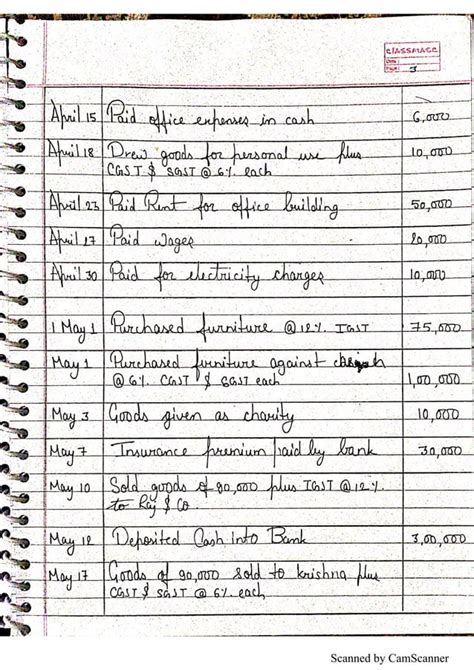 classmate
Date:
Page: 3
April 15 Paid office expenses in cash 6,000
April 18 Drew goods for personal use plus 10,000
CGST & SGST @ 6% each
April 23 Paid Rent for office building 50,000
April 27 Paid wages 20,000
April 30 Paid for electricity charges 10,000
1 May 1 Purchased furniture @ 12% IGST 75,000
May 1 Purchased furniture against
@ 6% CGST & SGST each 1,00,000
May 3 Goods given as charity 10,000
May 7 Insurance premium paid by bank 30,000
May 10 Sold goods of 90,000 plus IGST @ 12%
to Raj & Co.
May 12 Deposited Cash into Bank 3,00,000
May 17 Goods of 90,000 sold to krishna plus
CGST & SGST @ 6% each
Scanned by CamScanner